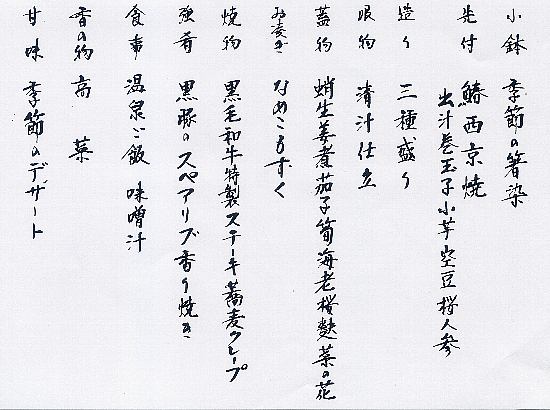 小鉢 季節の箸染
先付 鰆西京焼
出汁巻玉子 小芋 空豆 桜人参
造り 三種盛り
吸物 清汁仕立
蓋物 蛸生姜煮 茄子 筍 海老 桜麩 菜の花
なめこもずく
焼物 黒毛和牛特製ステーキ 蕎麦クレープ
強肴 黒豚のスペアリブ香り焼き
食事 温泉ご飯 味噌汁
香の物 高菜
甘味 季節のデザート